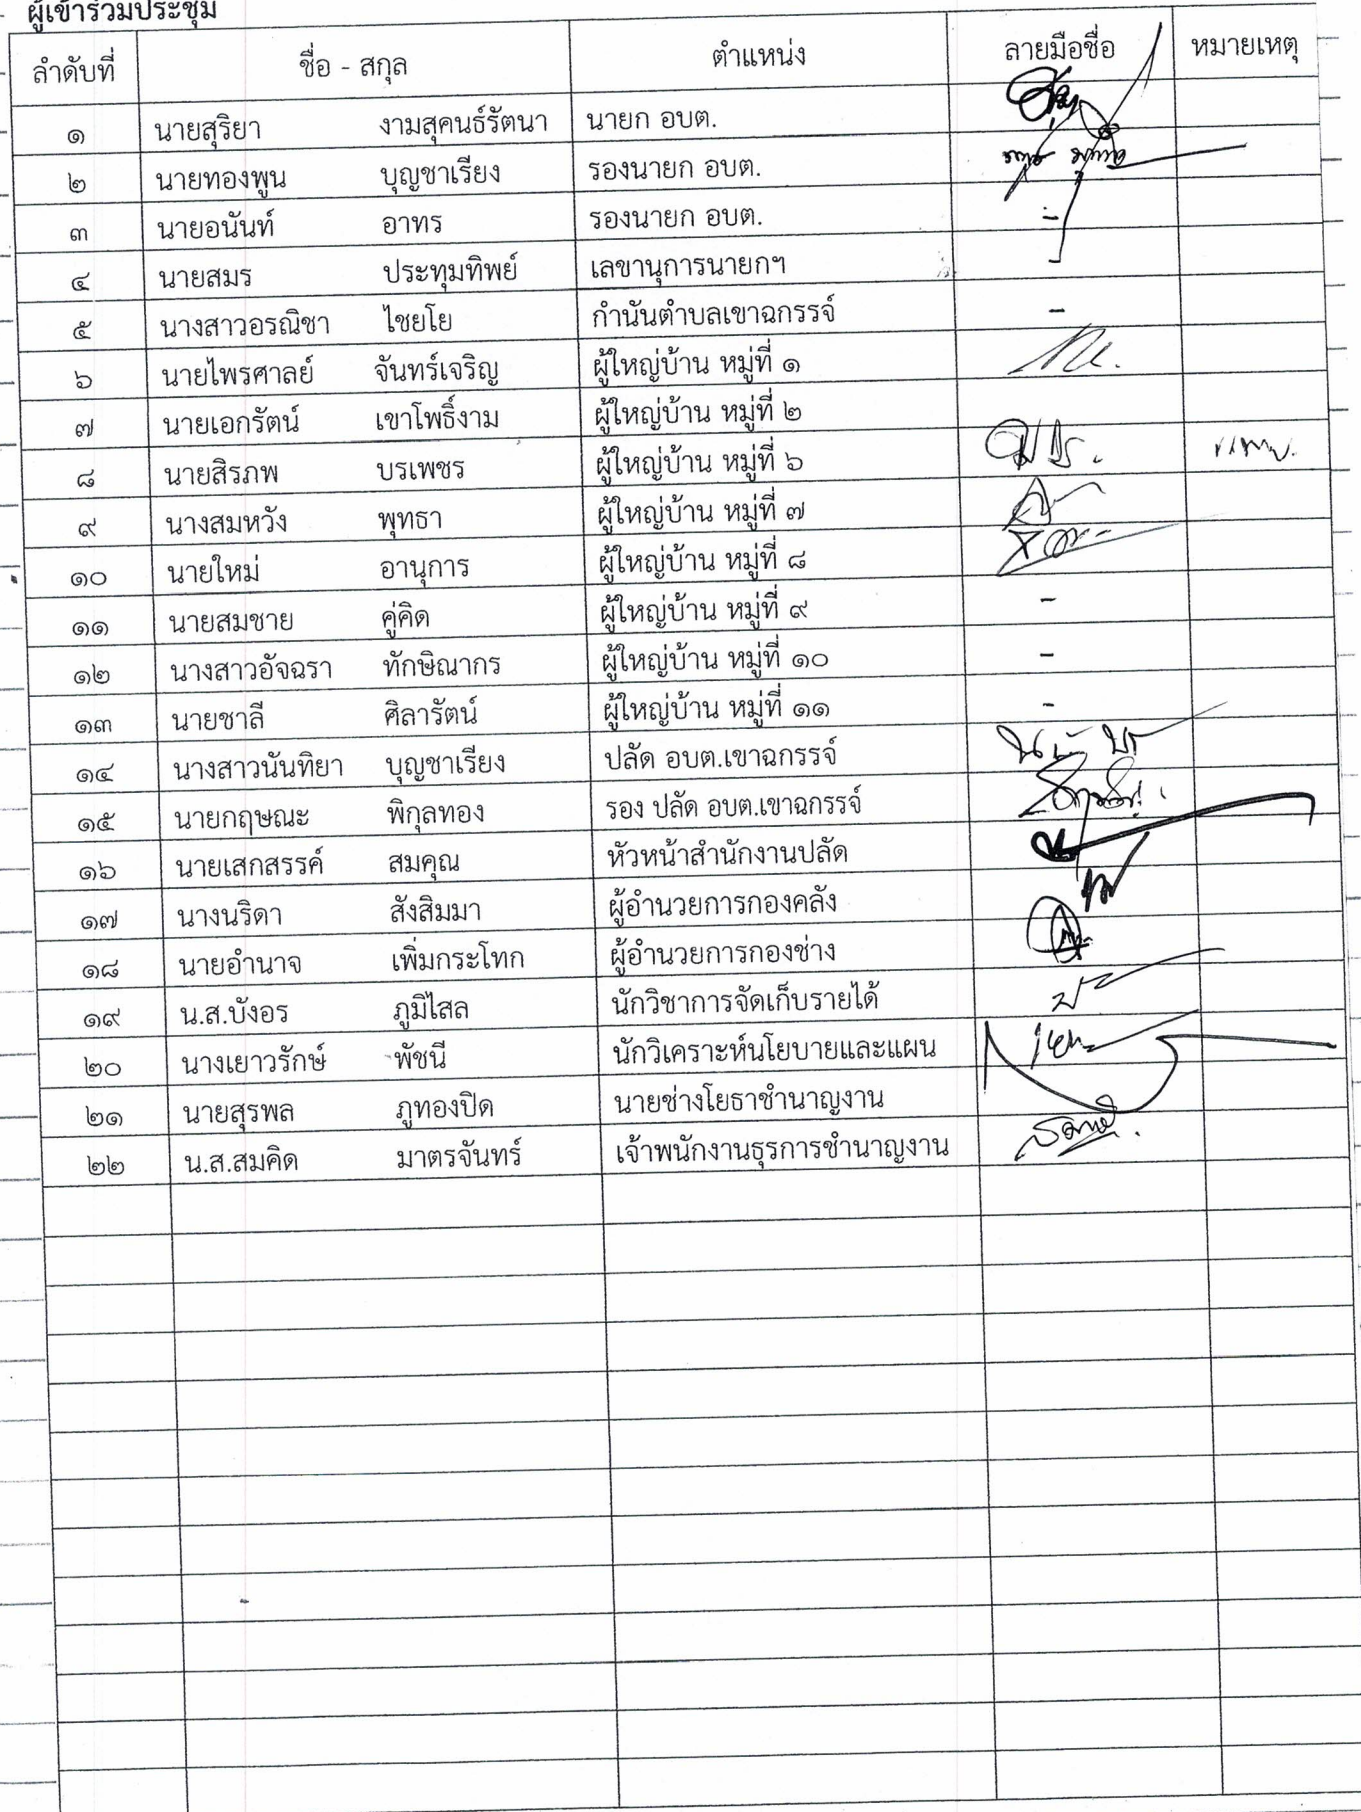 ผู้เข้าร่วมประชุม
ลำดับที่ ชื่อ - สกุล ตำแหน่ง ลายมือชื่อ หมายเหตุ
๑ นายสุริยา งามสุคนธ์รัตนา นายก อบต.
๒ นายทองพูน บุญชาเรียง รองนายก อบต.
๓ นายอนันท์ อาทร รองนายก อบต. -
๔ นายสมร ประทุมทิพย์ เลขานุการนายกฯ
๕ นางสาวอรณิชา ไชยโย กำนันตำบลเขาฉกรรจ์ -
๖ นายไพรศาลย์ จันทร์เจริญ ผู้ใหญ่บ้าน หมู่ที่ ๑
๗ นายเอกรัตน์ เขาโพธิ์งาม ผู้ใหญ่บ้าน หมู่ที่ ๒
๘ นายสิรภพ บรเพชร ผู้ใหญ่บ้าน หมู่ที่ ๖
๙ นางสมหวัง พุทธา ผู้ใหญ่บ้าน หมู่ที่ ๗
๑๐ นายใหม่ อานุการ ผู้ใหญ่บ้าน หมู่ที่ ๘
๑๑ นายสมชาย คู่คิด ผู้ใหญ่บ้าน หมู่ที่ ๙ -
๑๒ นางสาวอัจฉรา ทักษิณากร ผู้ใหญ่บ้าน หมู่ที่ ๑๐ -
๑๓ นายชาลี ศิลารัตน์ ผู้ใหญ่บ้าน หมู่ที่ ๑๑ -
๑๔ นางสาวนันทิยา บุญชาเรียง ปลัด อบต.เขาฉกรรจ์
๑๕ นายกฤษณะ พิกุลทอง รอง ปลัด อบต.เขาฉกรรจ์
๑๖ นายเสกสรรค์ สมคุณ หัวหน้าสำนักงานปลัด
๑๗ นางนริดา สังสิมมา ผู้อำนวยการกองคลัง
๑๘ นายอำนาจ เพิ่มกระโทก ผู้อำนวยการกองช่าง
๑๙ น.ส.บังอร ภูมิไสล นักวิชาการจัดเก็บรายได้
๒๐ นางเยาวรักษ์ พัชนี นักวิเคราะห์นโยบายและแผน
๒๑ นายสุรพล ภูทองปิด นายช่างโยธาชำนาญงาน
๒๒ น.ส.สมคิด มาตรจันทร์ เจ้าพนักงานธุรการชำนาญงาน